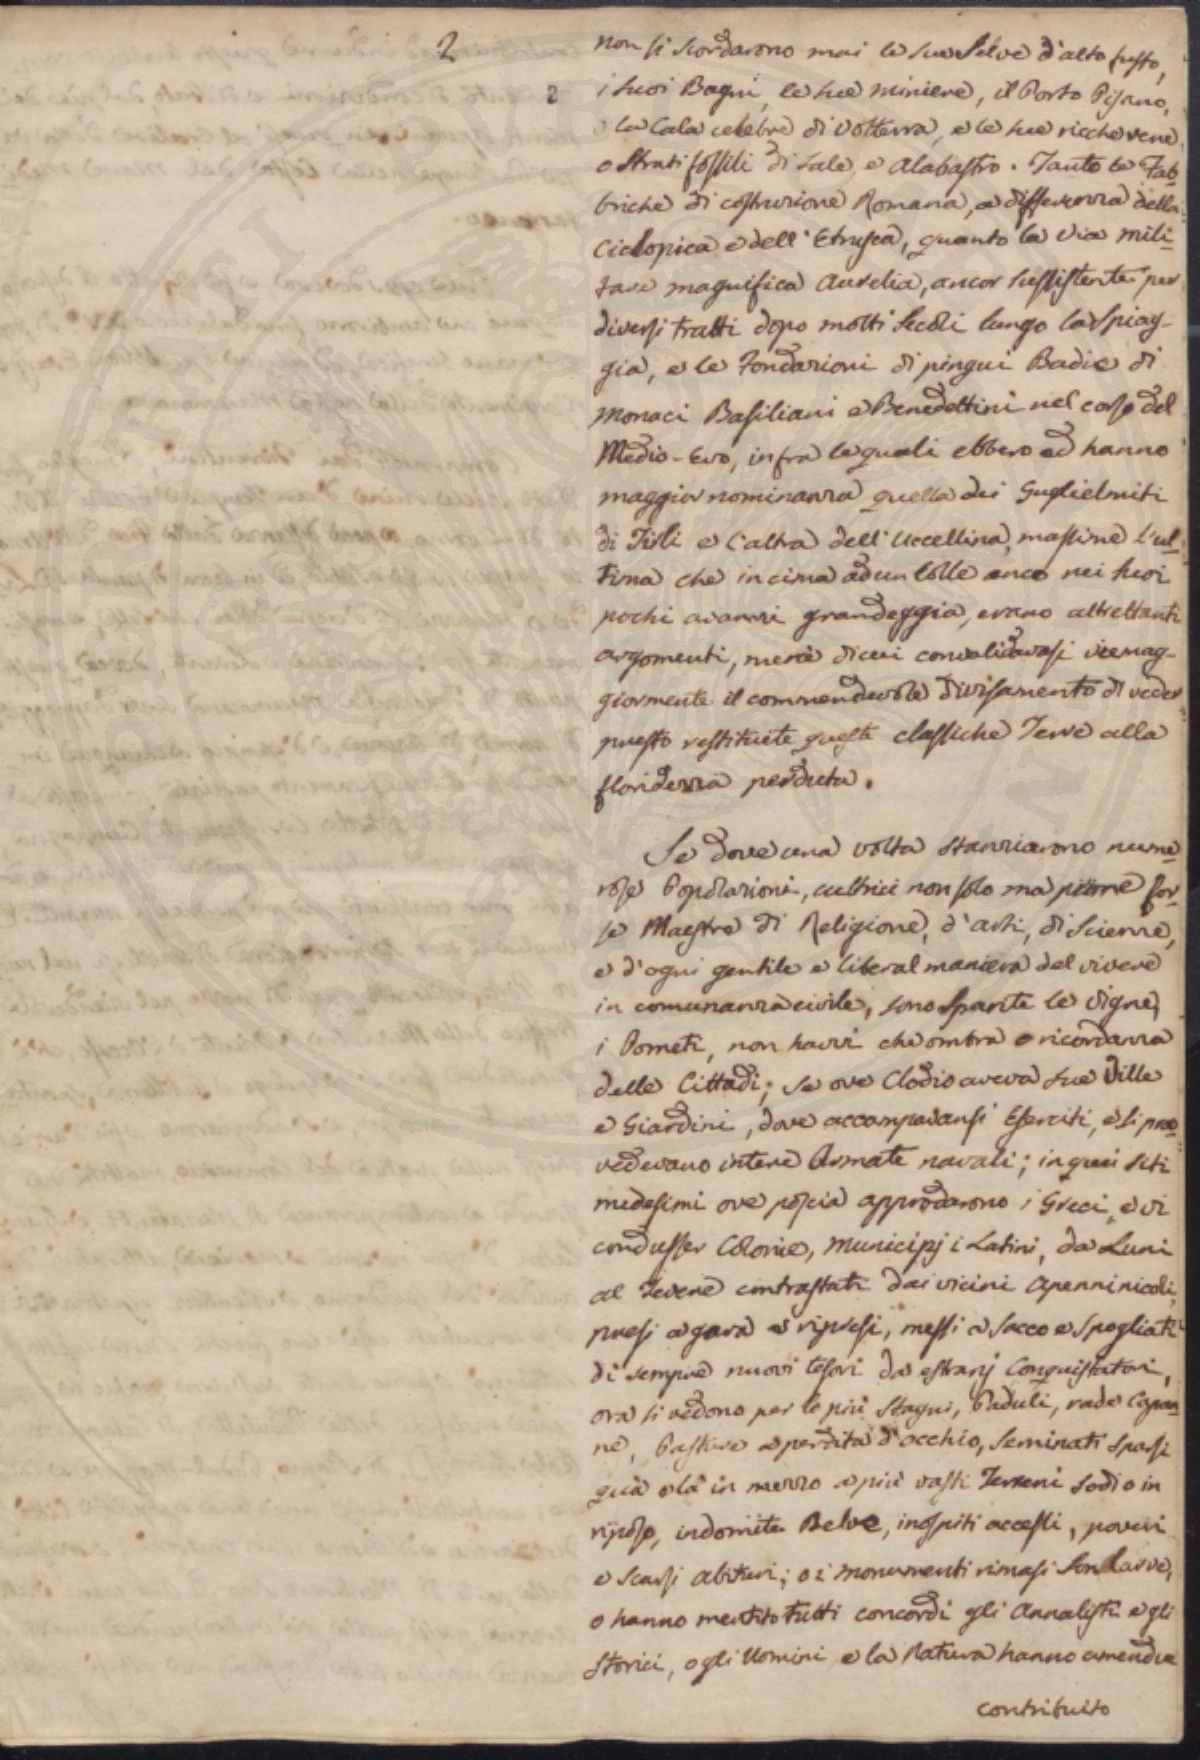 2
2
non si scordarono mai le sue Selve d'alto fusto,
i suoi Bagni, le sue miniere, il Porto Pisano,
la Cala celebre di Volterra, e le sue ricche vene
o Strati fossili di Sale, e Alabastro. Tanto le Fab-
briche di costruzione Romana, a differenza della
Ciclopica e dell'Etrusca, quanto la Via mili-
tare magnifica Aurelia, ancor sussistente per
diversi tratti dopo molti Secoli lungo la Spiag-
gia, e le Fondazioni di pingui Badie di
Monaci Basiliani e Benedettini nel corso del
Medio-Evo, infra le quali ebbero ed hanno
maggior nominanza quella dei Guglielmiti
di Tirli e l'altra dell'Uccellina, massime l'ul-
tima che in cima ad un Colle anco nei suoi
pochi avanzi grandeggia, erano altrettanti
argomenti, mercè di cui convalidavasi viemag-
giormente il commendevole divisamento di veder
presto restituite queste classiche Terre alla
floridezza perduta.
Se dove una volta stanziarono nume-
rose Popolazioni, cultrici non solo ma prime for-
se Maestre di Religione, d'arti, di Scienze,
e d'ogni gentile e liberal maniera del vivere
in comunanza civile, sono sparite le Vigne,
i Pometi, non havvi che ombra o ricordanza
delle Cittadi; se ove Clodio aveva sue Ville
e Giardini, dove accampavansi Eserciti, e si prov-
vedevano intere Armate navali; in quei siti
medesimi ove poscia approdarono i Greci, e vi
condusser Colonie, Municipj i Latini, da Luni
al Tevere contrastati dai vicini Apenninicoli,
presi a gara e ripresi, messi a Sacco e Spogliati
di sempre nuovi tesori da estranj Conquistatori,
ora si vedono per lo più Stagni, Paduli, rade Capan-
ne, Pasture a perdita d'occhio, Seminati sparsi
quà e là in mezzo a più vasti Terreni sodi o in
riposo, indomite Belve, inospiti accessi, poveri
e scarsi abituri; o i monumenti rimasi son larve,
o hanno mentito tutti concordi gli Annalisti e gli
Storici, o gli Uomini e la Natura hanno amendue
contribuito